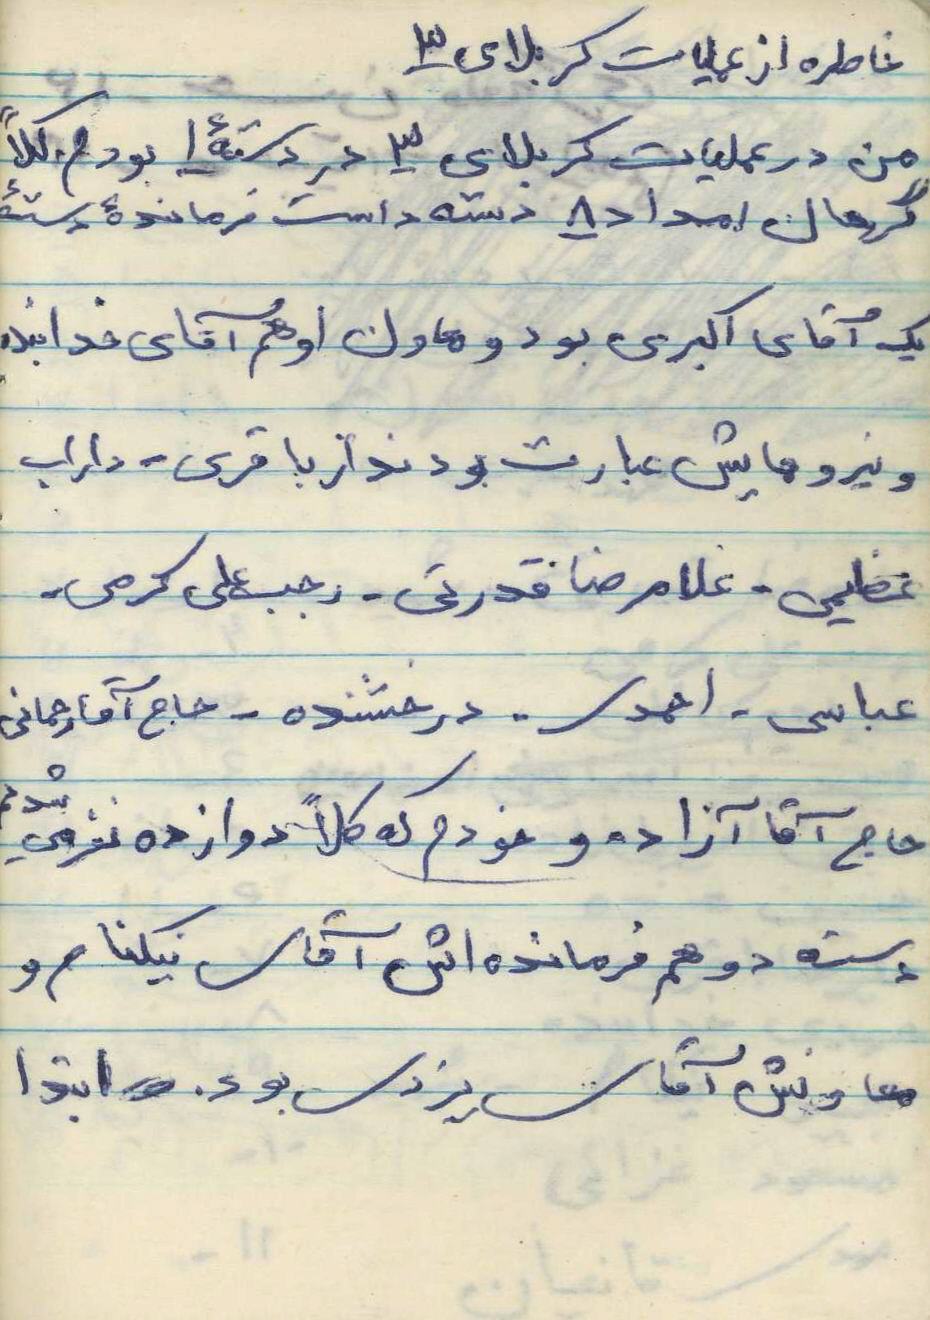 خاطره از عملیات کربلای ۳
من در عملیات کربلای ۳ در دستهٔ ۱ بودم. کلاً
گرهان امداد ۸ دسته داست فرماندهٔ دستهٔ
یک آقای اکبری بود و معاون او هم آقای خدابنده
و نیروهایش عبارت بودند از باقری - داراب
عظیمی - غلامرضا قدرتی - رجبعلی کرمی -
عباسی - احمدی - درخشنده - حاج آقا رحمانی
حاج آقا آزاده و خودم که کلاً دوازده نفر می شدیم
دسته دو هم فرمانده اش آقای نیکنام و
معاونش آقای یزدی بود. ابتدا